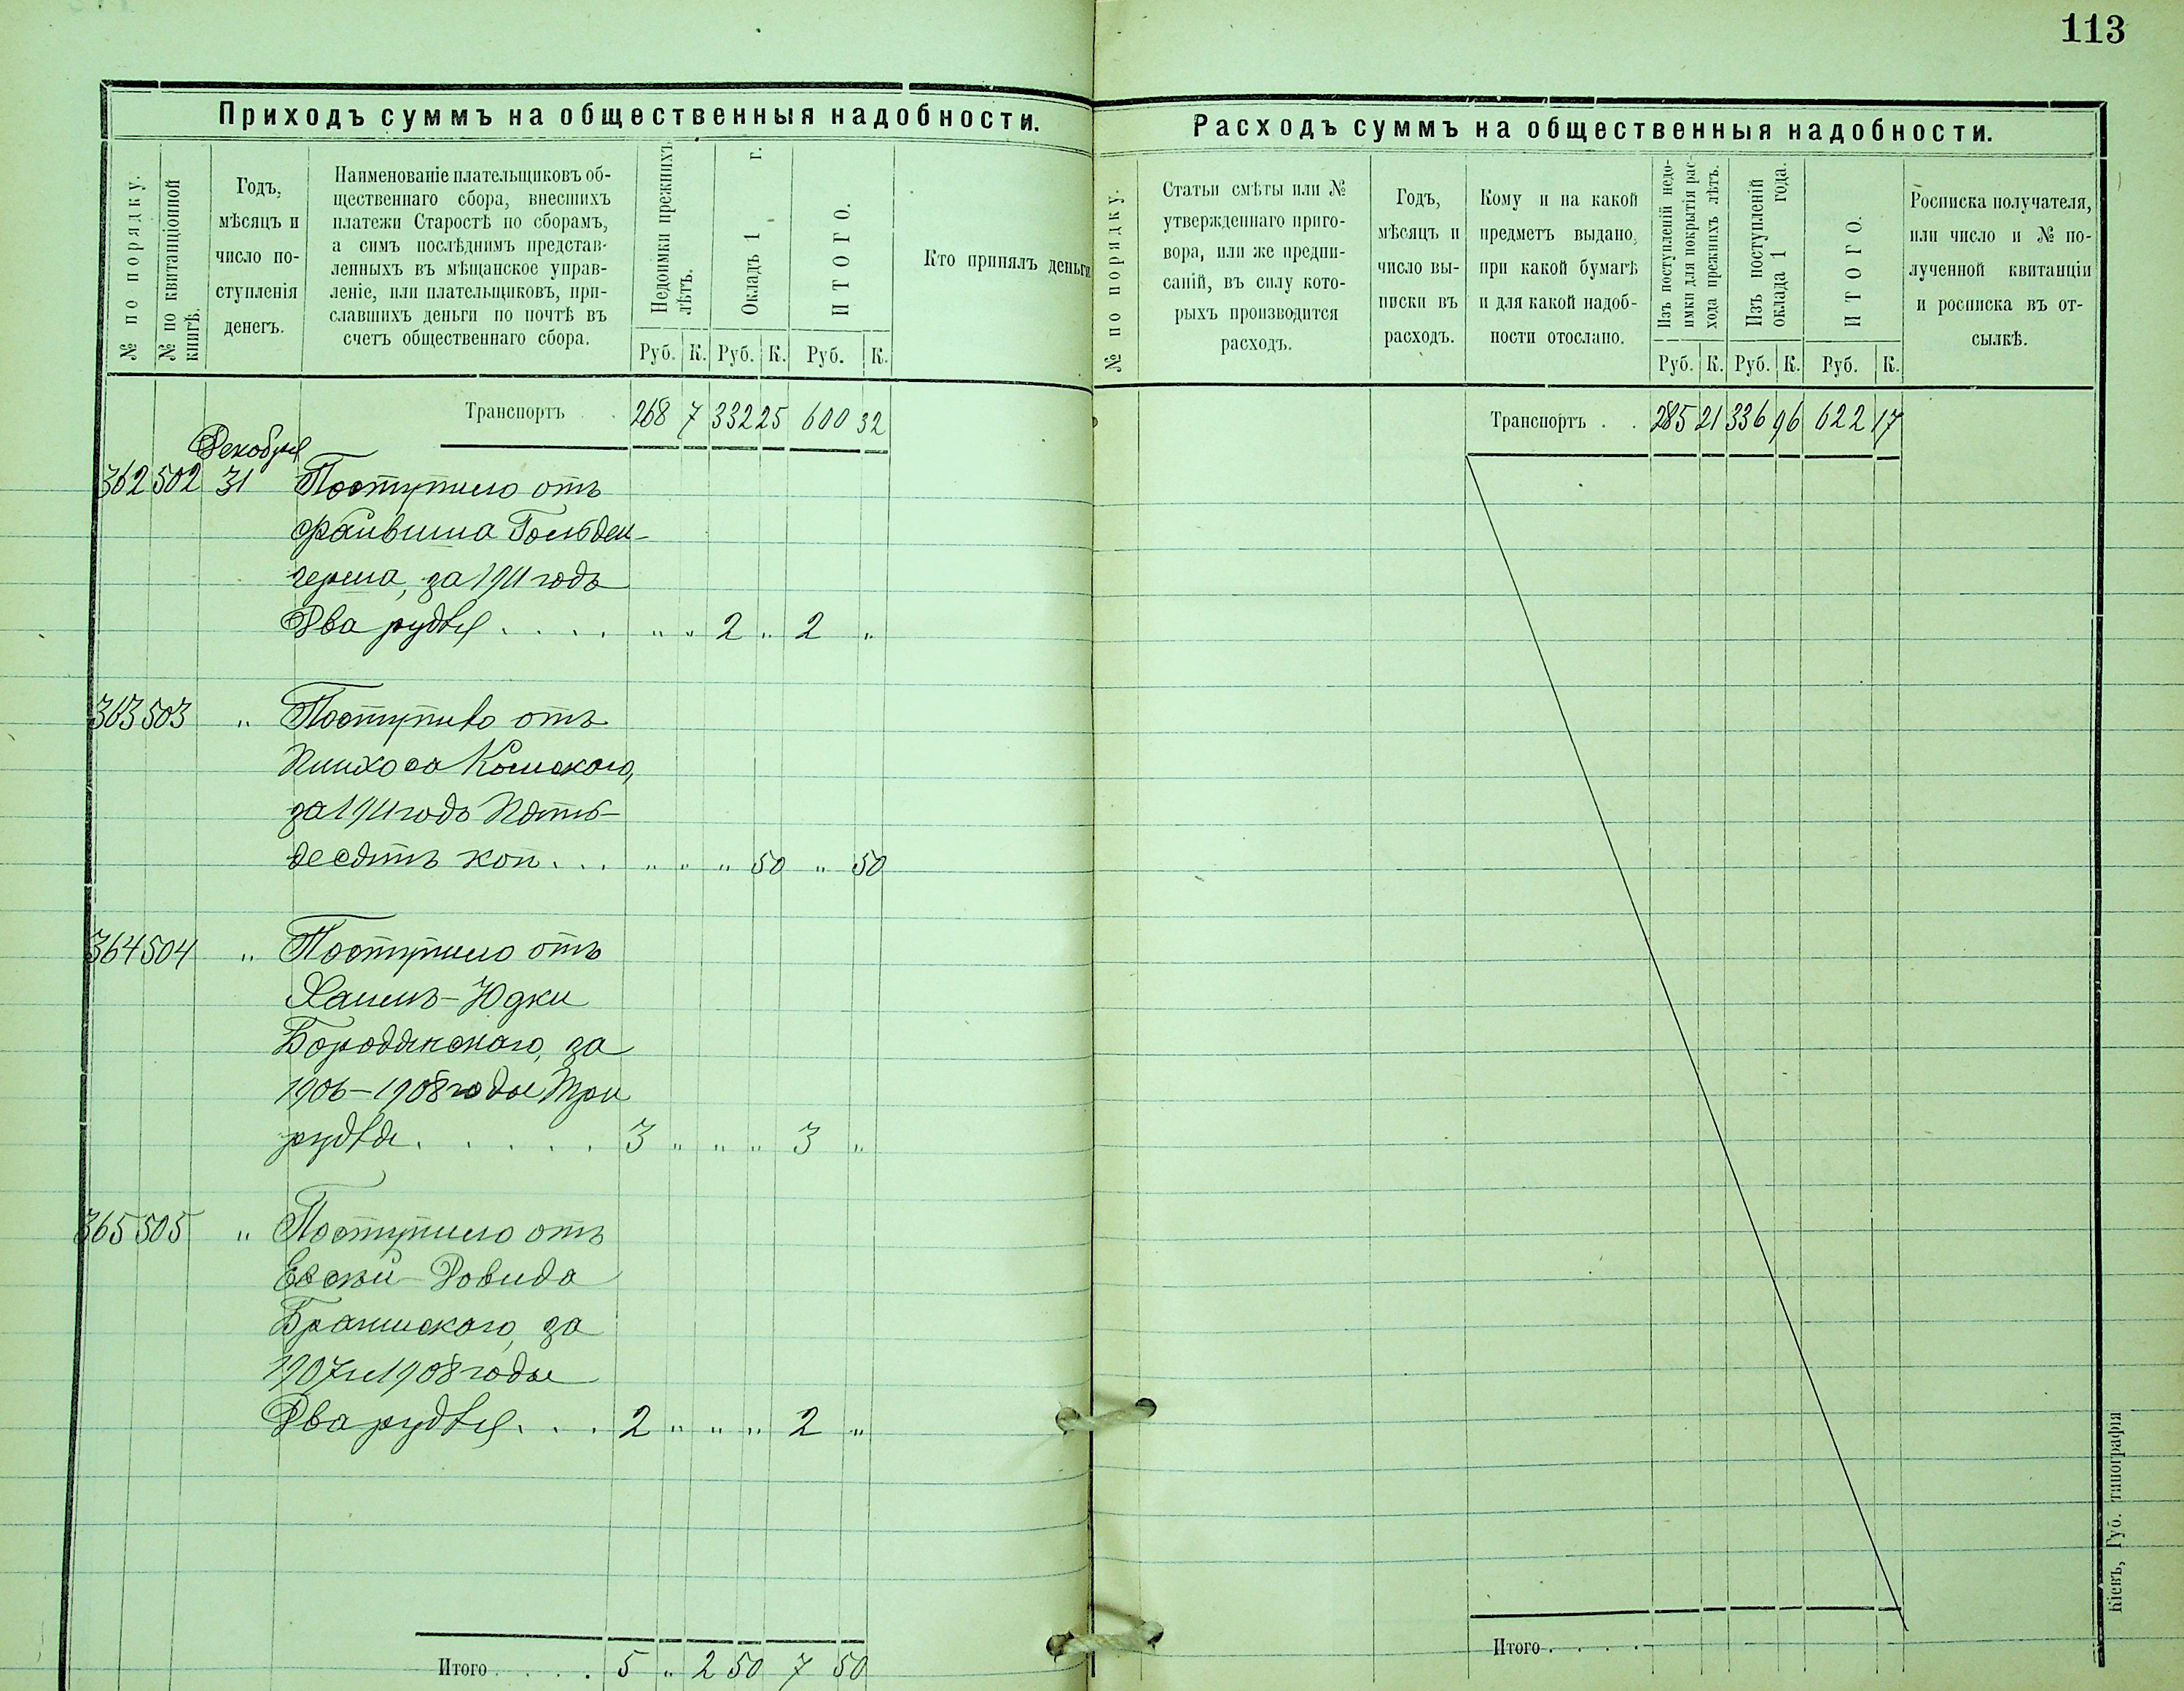 113
Приходъ суммъ на общественныя надобности.
№ по порядку.
№ по квитанціонной
книгѣ.
Годъ,
мѣсяцъ и
число по-
ступленія
денегъ.
Наименованіе плательщиковъ об-
щественнаго сбора, внесшихъ
платежи Старостѣ по сборамъ,
а симъ послѣднимъ представ-
ленныхъ въ мѣщанское управ-
леніе, или плательщиковъ, при-
славшихъ деньги по почтѣ въ
счетъ общественнаго сбора.
Недоимки прежнихъ
лѣтъ.
Окладъ 1 г.
ИТОГО.
Руб. К. Руб. К. Руб. К.
Кто принялъ деньги
Транспортъ . . 268 7 332 25 600 32
Декабря
362 502 31 Поступило отъ
Файвиша Гольден-
герша, за 1911 годъ
Два рубля . . . . " " 2 " 2 "
363 503 " Поступило отъ
Пинхоса
за 1911 годъ Пять-
десятъ коп. . . " " " 50 " 50
364 504 " Поступило отъ
Юдки
Бородянскаго, за
1906-1908 годы Три
рубля . . . . . 3 " " " 3 "
365 505 " Поступило отъ
Довида
за
1907 и 1908 годы
Два рубля . . . 2 " " " 2 "
Итого . . . . 5 " 2 50 7 50
Расходъ суммъ на общественныя надобности.
№ по порядку.
Статьи смѣты или №
утвержденнаго приго-
вора, или же предпи-
саній, въ силу кото-
рыхъ производится
расходъ.
Годъ,
мѣсяцъ и
число вы-
писки въ
расходъ.
Кому и на какой
предметъ выдано,
при какой бумагѣ
и для какой надоб-
ности отослано.
Изъ поступленій недо-
имки для покрытія рас-
хода прежнихъ лѣтъ.
Изъ поступленій
оклада 1 года.
ИТОГО.
Руб. К. Руб. К. Руб. К.
Росписка получателя,
или число и № по-
лученной квитанціи
и росписка въ от-
сылкѣ.
Транспортъ . . 285 21 336 96 622 17
Итого . . . .
Кіевъ, Губ. типографія